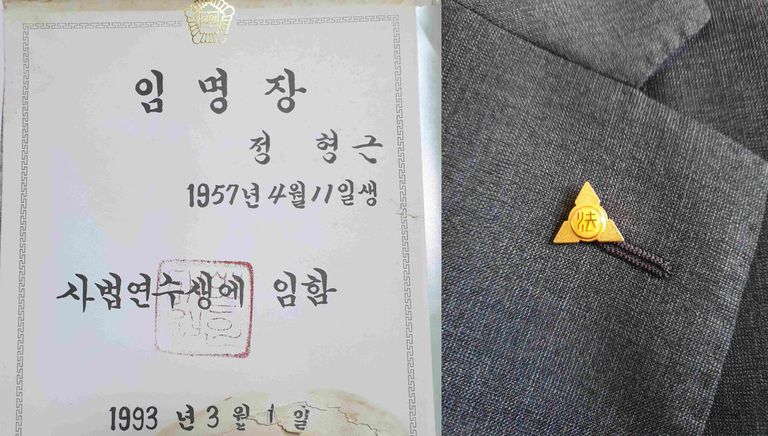 임 명 장
정 형 근
1957年 4月 11일생
사법연수생에 임함
1993 년 3 월 1 일
法